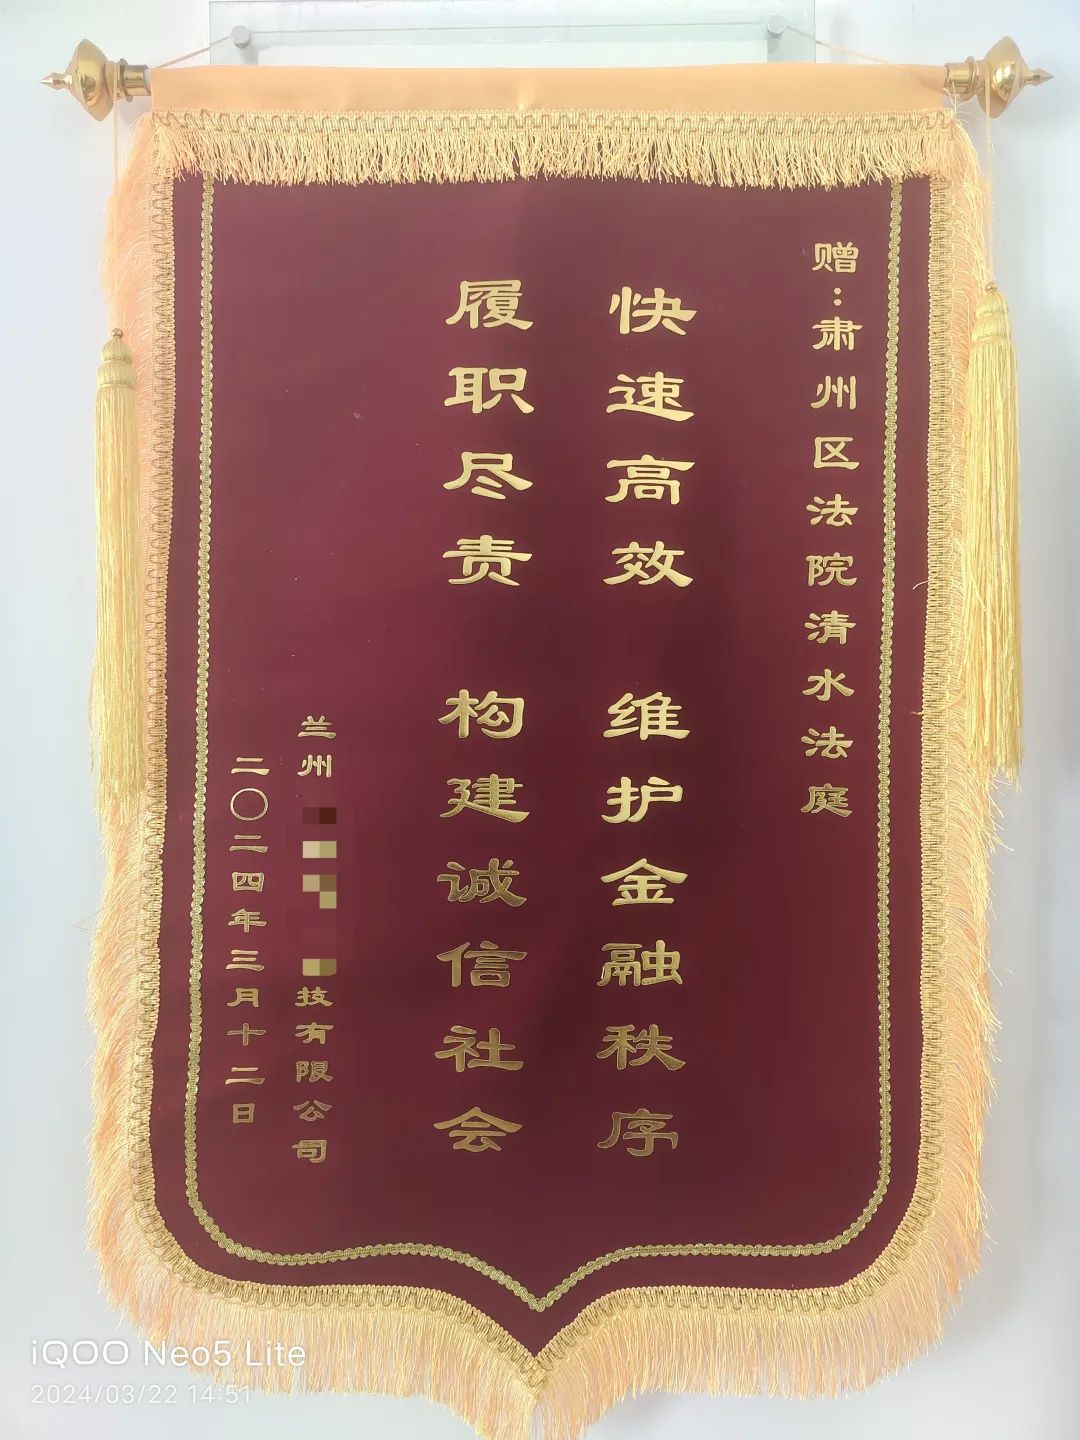 赠：肃州区法院清水法庭
快速高效 维护金融秩序
履职尽责 构建诚信社会
兰州
技有限公司
二〇二四年三月十二日
iQOO Neo5 Lite
2024/03/22 14:51